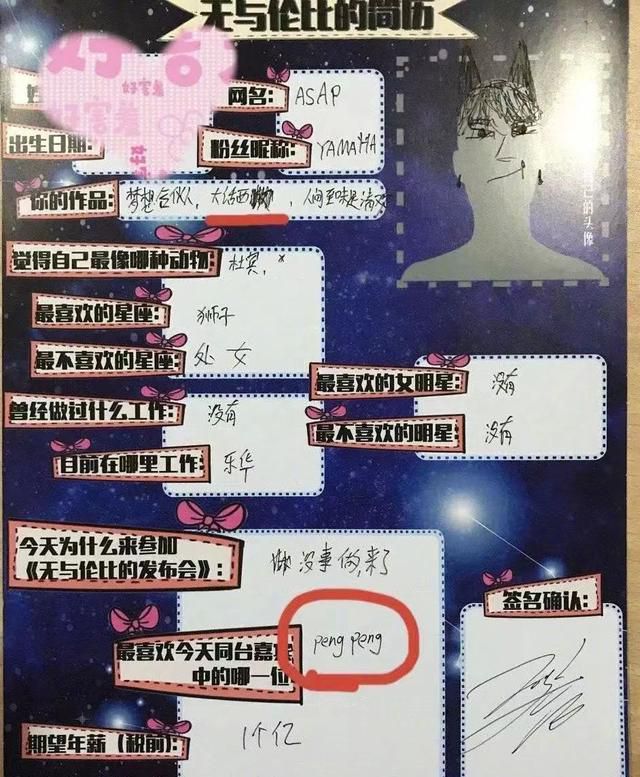 无与伦比的简历
好
好害羞
好害羞
网名: ASAP
出生日期:
粉丝昵称: YAMAHA
你的作品: 梦想合伙人, 大话西游, 人间至味是清欢
自己的头像
觉得自己最像哪种动物: 杜宾,
最喜欢的星座: 狮子
最不喜欢的星座: 处女
最喜欢的女明星: 没有
曾经做过什么工作: 没有
最不喜欢的明星: 没有
目前在哪里工作: 乐华
今天为什么来参加
《无与伦比的发布会》: 没事做,来了
签名确认:
最喜欢今天同台嘉宾 peng peng
中的哪一位
期望年薪(税前): 1个亿